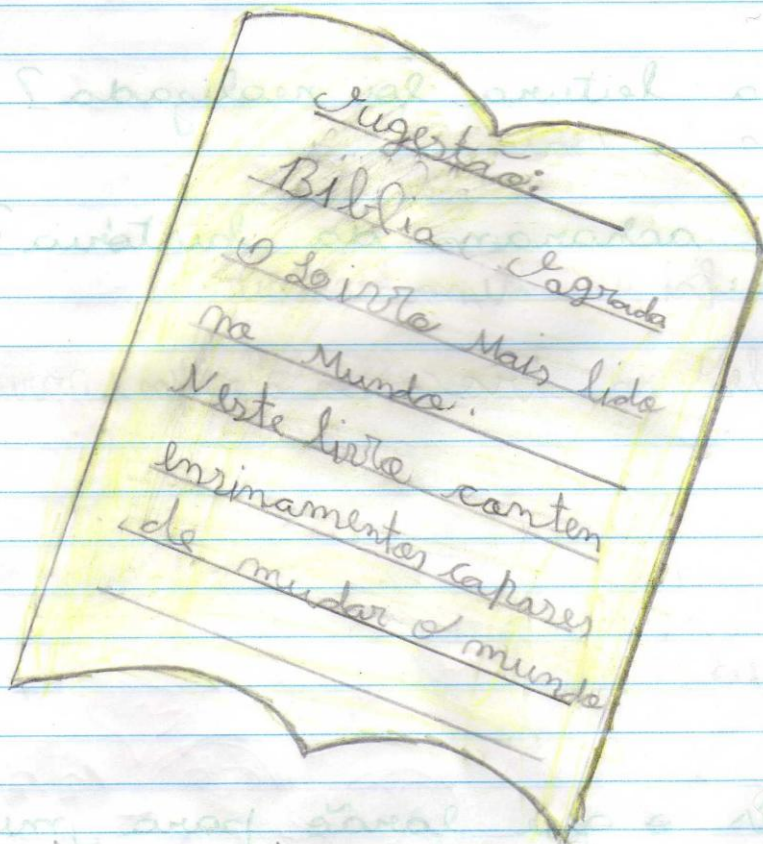 Sugestão:
Biblia Sagrada
O Livro Mais lido
no Mundo.
Neste livro conten
ensinamentos capazes
de mudar o mundo